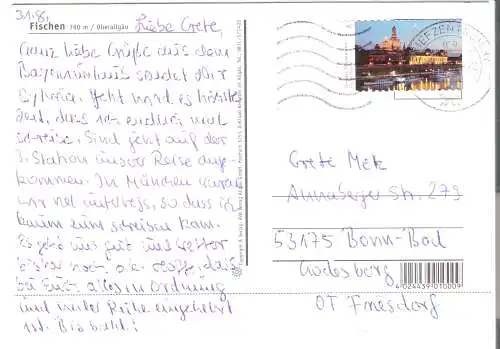 31.8.
Fischen 760 m / Oberallgäu
Liebe Grete,
Ganz liebe Grüße aus dem
Bayernurlaub sendet Dir
Sylvia. Jetzt wird es höchste
Zeit, dass ich endlich mal
schreibe. Sind jetzt auf der
3. Station unser Reise ange-
kommen. In München waren
wir viel unterwegs, so dass ich
kaum zum schreiben kam.
Es geht uns gut und Wetter
bisher noch o.k. Hoffe, dass
bei Euch alles in Ordnung
und wieder Ruhe eingekehrt
ist. Bis bald!
BRIEFZENTRUM
Grete Metz
Annaberger Str. 279
53175 Bonn-Bad
Godesberg
OT Friesdorf
4 024439 010009